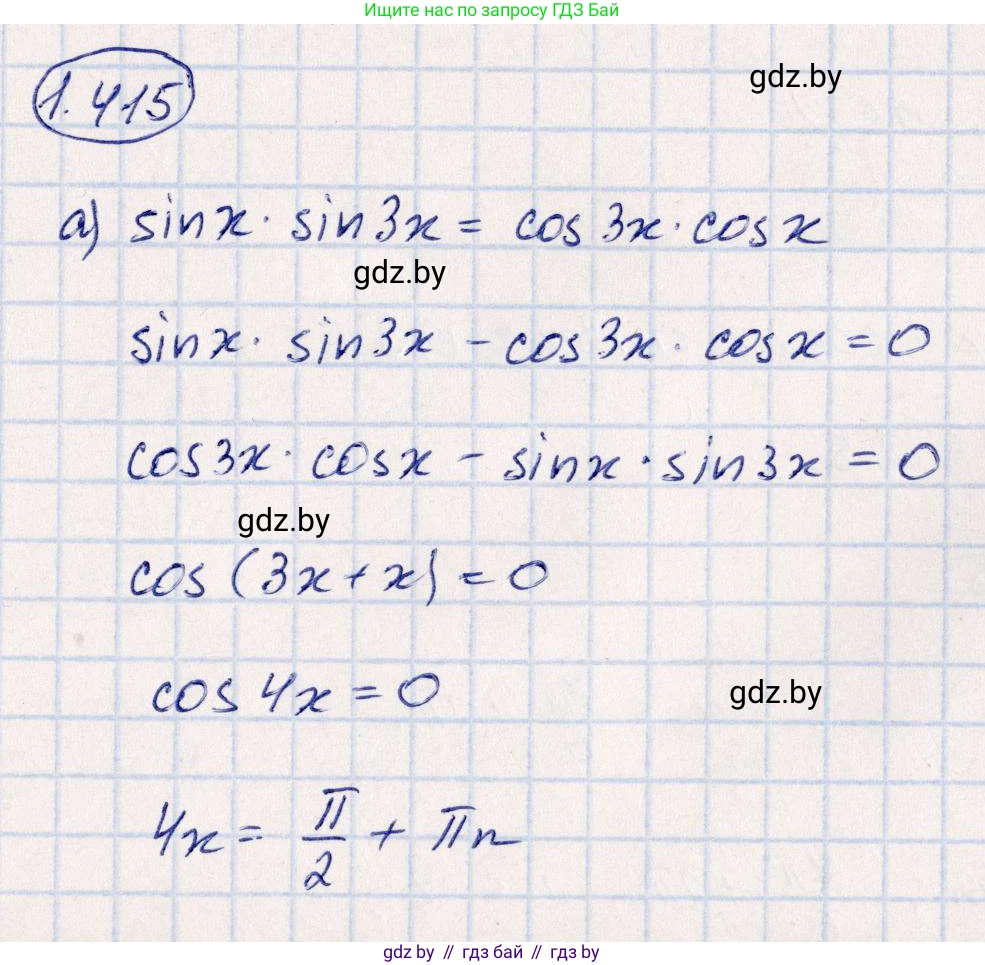 Ищите нас по запросу ГДЗ Бай
1.415
gdz.by
а) sinx · sin3x = cos3x · cosx
gdz.by
sinx · sin3x - cos3x · cosx = 0
cos3x · cosx - sinx · sin3x = 0
gdz.by
cos(3x + x) = 0
cos4x = 0
gdz.by
4x = π/2 + πn
gdz.by // гдз бай // гдз by